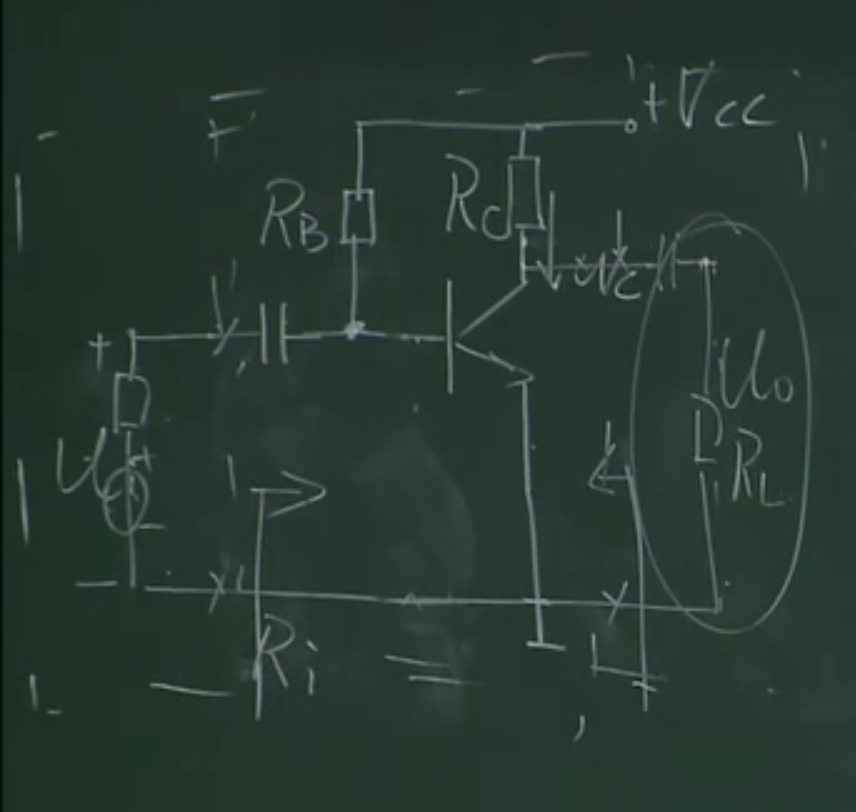 +VCC
RB
RC
uC
+
U
+
Uo
−
RL
Ri